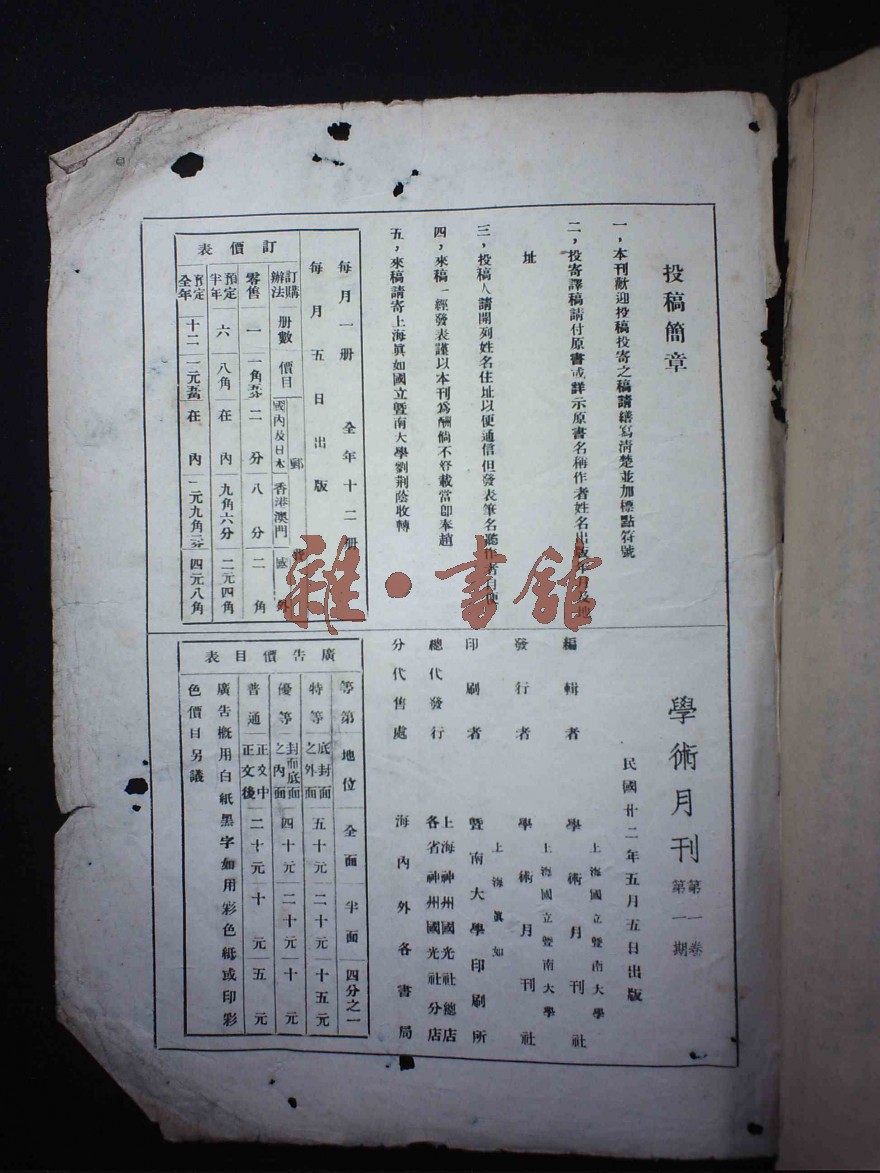 投稿簡章
一，本刊歡迎投稿投寄之稿請繕寫清楚並加標點符號
二，投寄譯稿請付原書或詳示原書名稱作者姓名出版年月及地
址
三，投稿人請開列姓名住址以便通信但發表筆名聽作者自便
四，來稿一經發表謹以本刊爲酬倘不登載當卽奉趙
五，來稿請寄上海眞如國立暨南大學劉荆蔭收轉
每月一册 全年十二册
每月五日出版
訂價表
訂購辦法 册數 價目 郵費 國內及日本 香港澳門 國外
零售 一 一角五分 二分 八分 二角
預定半年 六 八角 在內 九角六分 二元四角
預定全年 十二 一元五角 在內 一元九角二分 四元八角
雜·書館
學術月刊 第一卷 第一期
民國廿二年五月五日出版
上海國立暨南大學
編輯者 學術月刊社
上海國立暨南大學
發行者 學術月刊社
上海眞如
印刷者 暨南大學印刷所
總代發行 上海神州國光社總店
各省神州國光社分店
分代售處 海內外各書局
廣告價目表
等第 地位 全面 半面 四分之一
特等 底封面之外面 五十元 二十元 十五元
優等 封面底面之內面 四十元 二十元 十元
普通 正文中正文後 二十元 十元 五元
廣告概用白紙黑字如用彩色紙或印彩
色價目另議